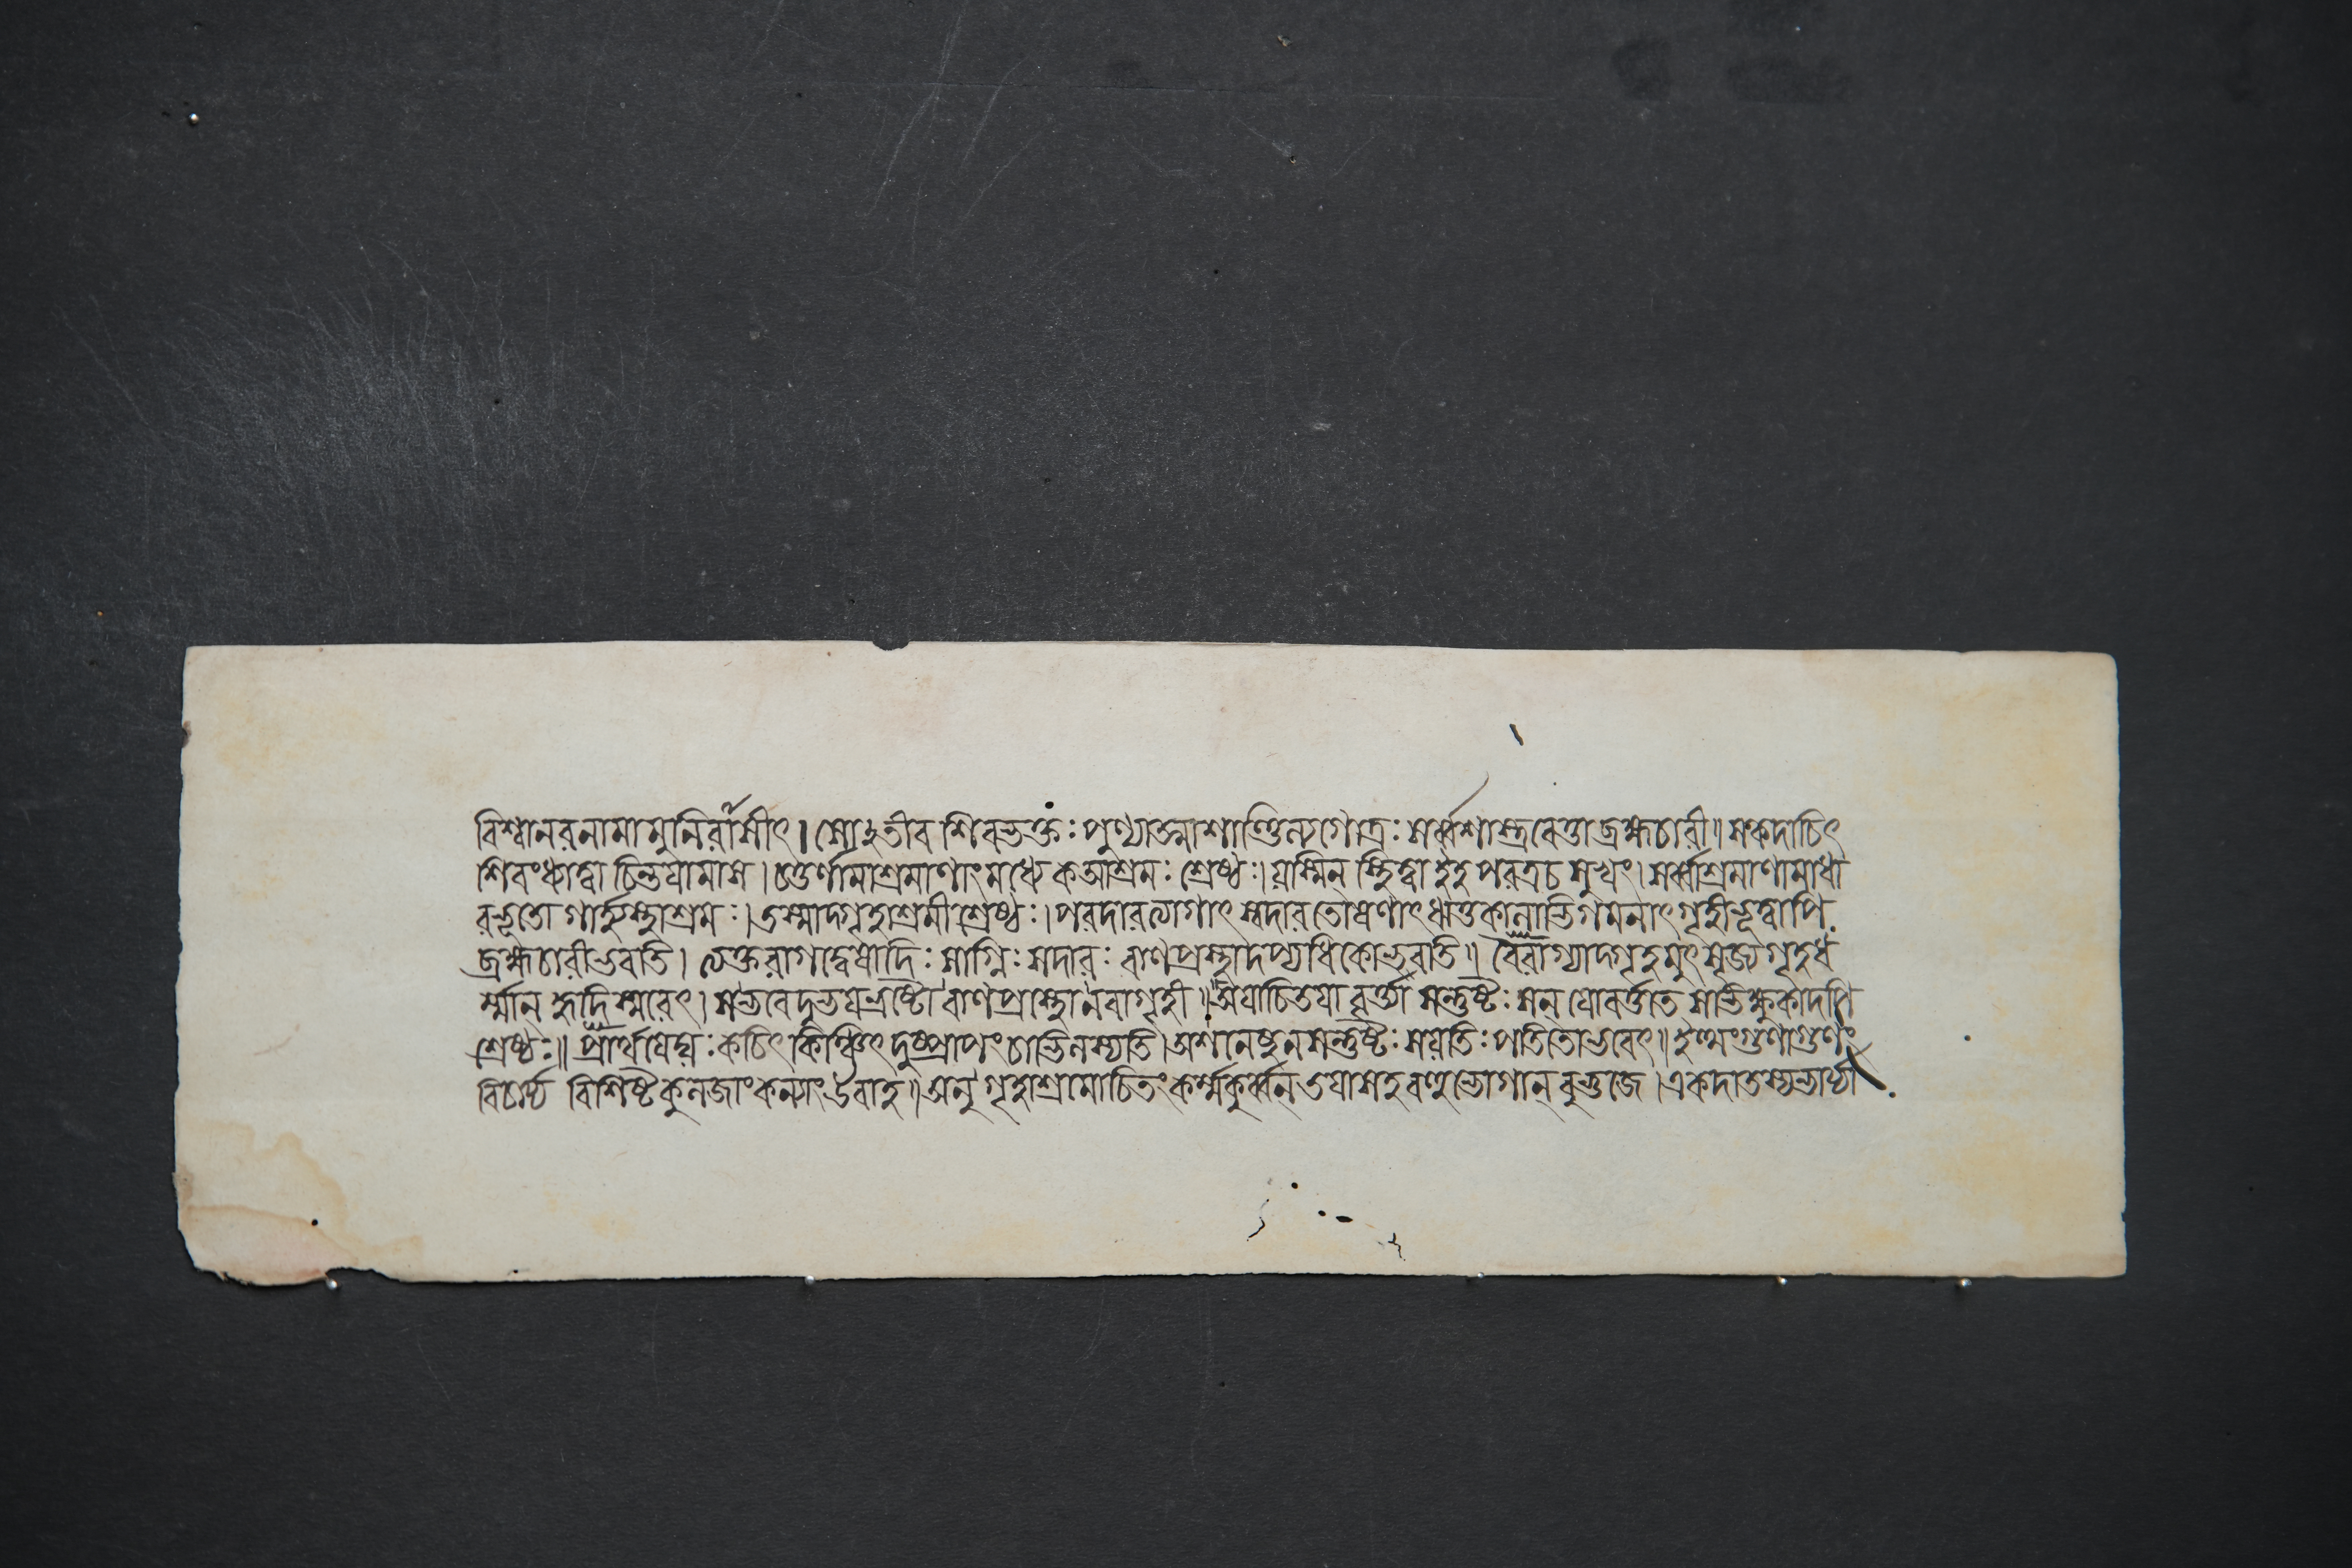 বিশ্বানরনামা মুনিরাসীৎ। সোঽতীব শিবভক্তঃ পুণ্যাত্মাশাণ্ডিল্যগোত্রঃ সর্ব্বশাস্ত্রবেত্তা ব্রহ্মচারী॥ সএকদাচিৎ
শিবংধ্যাত্বা চিন্তয়ামাস। চতুর্ণামাশ্রমাণাংমধ্যে কআশ্রমঃ শ্রেষ্ঠঃ। যস্মিন্ স্থিত্বা ইহ পরত্রচ সুখং। সর্ব্বাশ্রমাণামাধা
রভূতো গার্হস্থ্যাশ্রমঃ। তস্মাদ্গৃহাশ্রমী শ্রেষ্ঠঃ। পরদারত্যাগাৎ স্বদারতোষণাৎ ঋতুকালাভিগমনাৎ গৃহীভূত্বাপি
ব্রহ্মচারীভবতি। ত্যক্তরাগদ্বেষাদিঃ সাগ্নিঃ সদারঃ বাণপ্রস্থাদপ্যধিকোভবতি॥ বৈরাগ্যাদ্গৃহমুৎসৃজ্য গৃহধ
র্ম্মান্ হৃদি স্মরেৎ। সভবেদুভয়ভ্রষ্টো বাণপ্রস্থোনবাগৃহী॥ অযাচিতয়া বৃত্ত্যা সন্তুষ্টঃ সন্ যোবর্ত্তাতে সভিক্ষুকাদপি
শ্রেষ্ঠঃ॥ প্রার্থয়েদ্যঃ কচিৎ কিঞ্চিৎ দুষ্প্রাপং চাভিলষ্যতি। অশনেষুনসন্তুষ্টঃ সযতিঃ পতিতোভবেৎ॥ ইত্থংগুণাগুণং
বিচার্য্য বিশিষ্টকুলজাং কন্যাং উবাহ॥ অনু গৃহাশ্রমোচিতং কর্ম্মকুর্ব্বন্ তয়াসহ বহুভোগান্ বুভুজে। একদাতস্যভার্য্যা